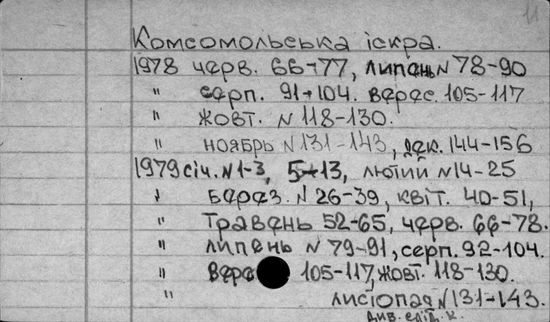 11
Комсомольська іскра.
1978 черв. 66-77, липень N 78-90
" серп. 91-104. верес. 105-117
" жовт. N 118-130.
" ноябрь N 131-143, дек. 144-156
1979 січ. N 1-3, 5-13, лютий N 14-25
" берез. N 26-39, квіт. 40-51,
" травень 52-65, черв. 66-78.
" липень N 79-91, серп. 92-104.
" верес 105-117, жовт. 118-130.
" листопад N 131-143.
див. слід. к.